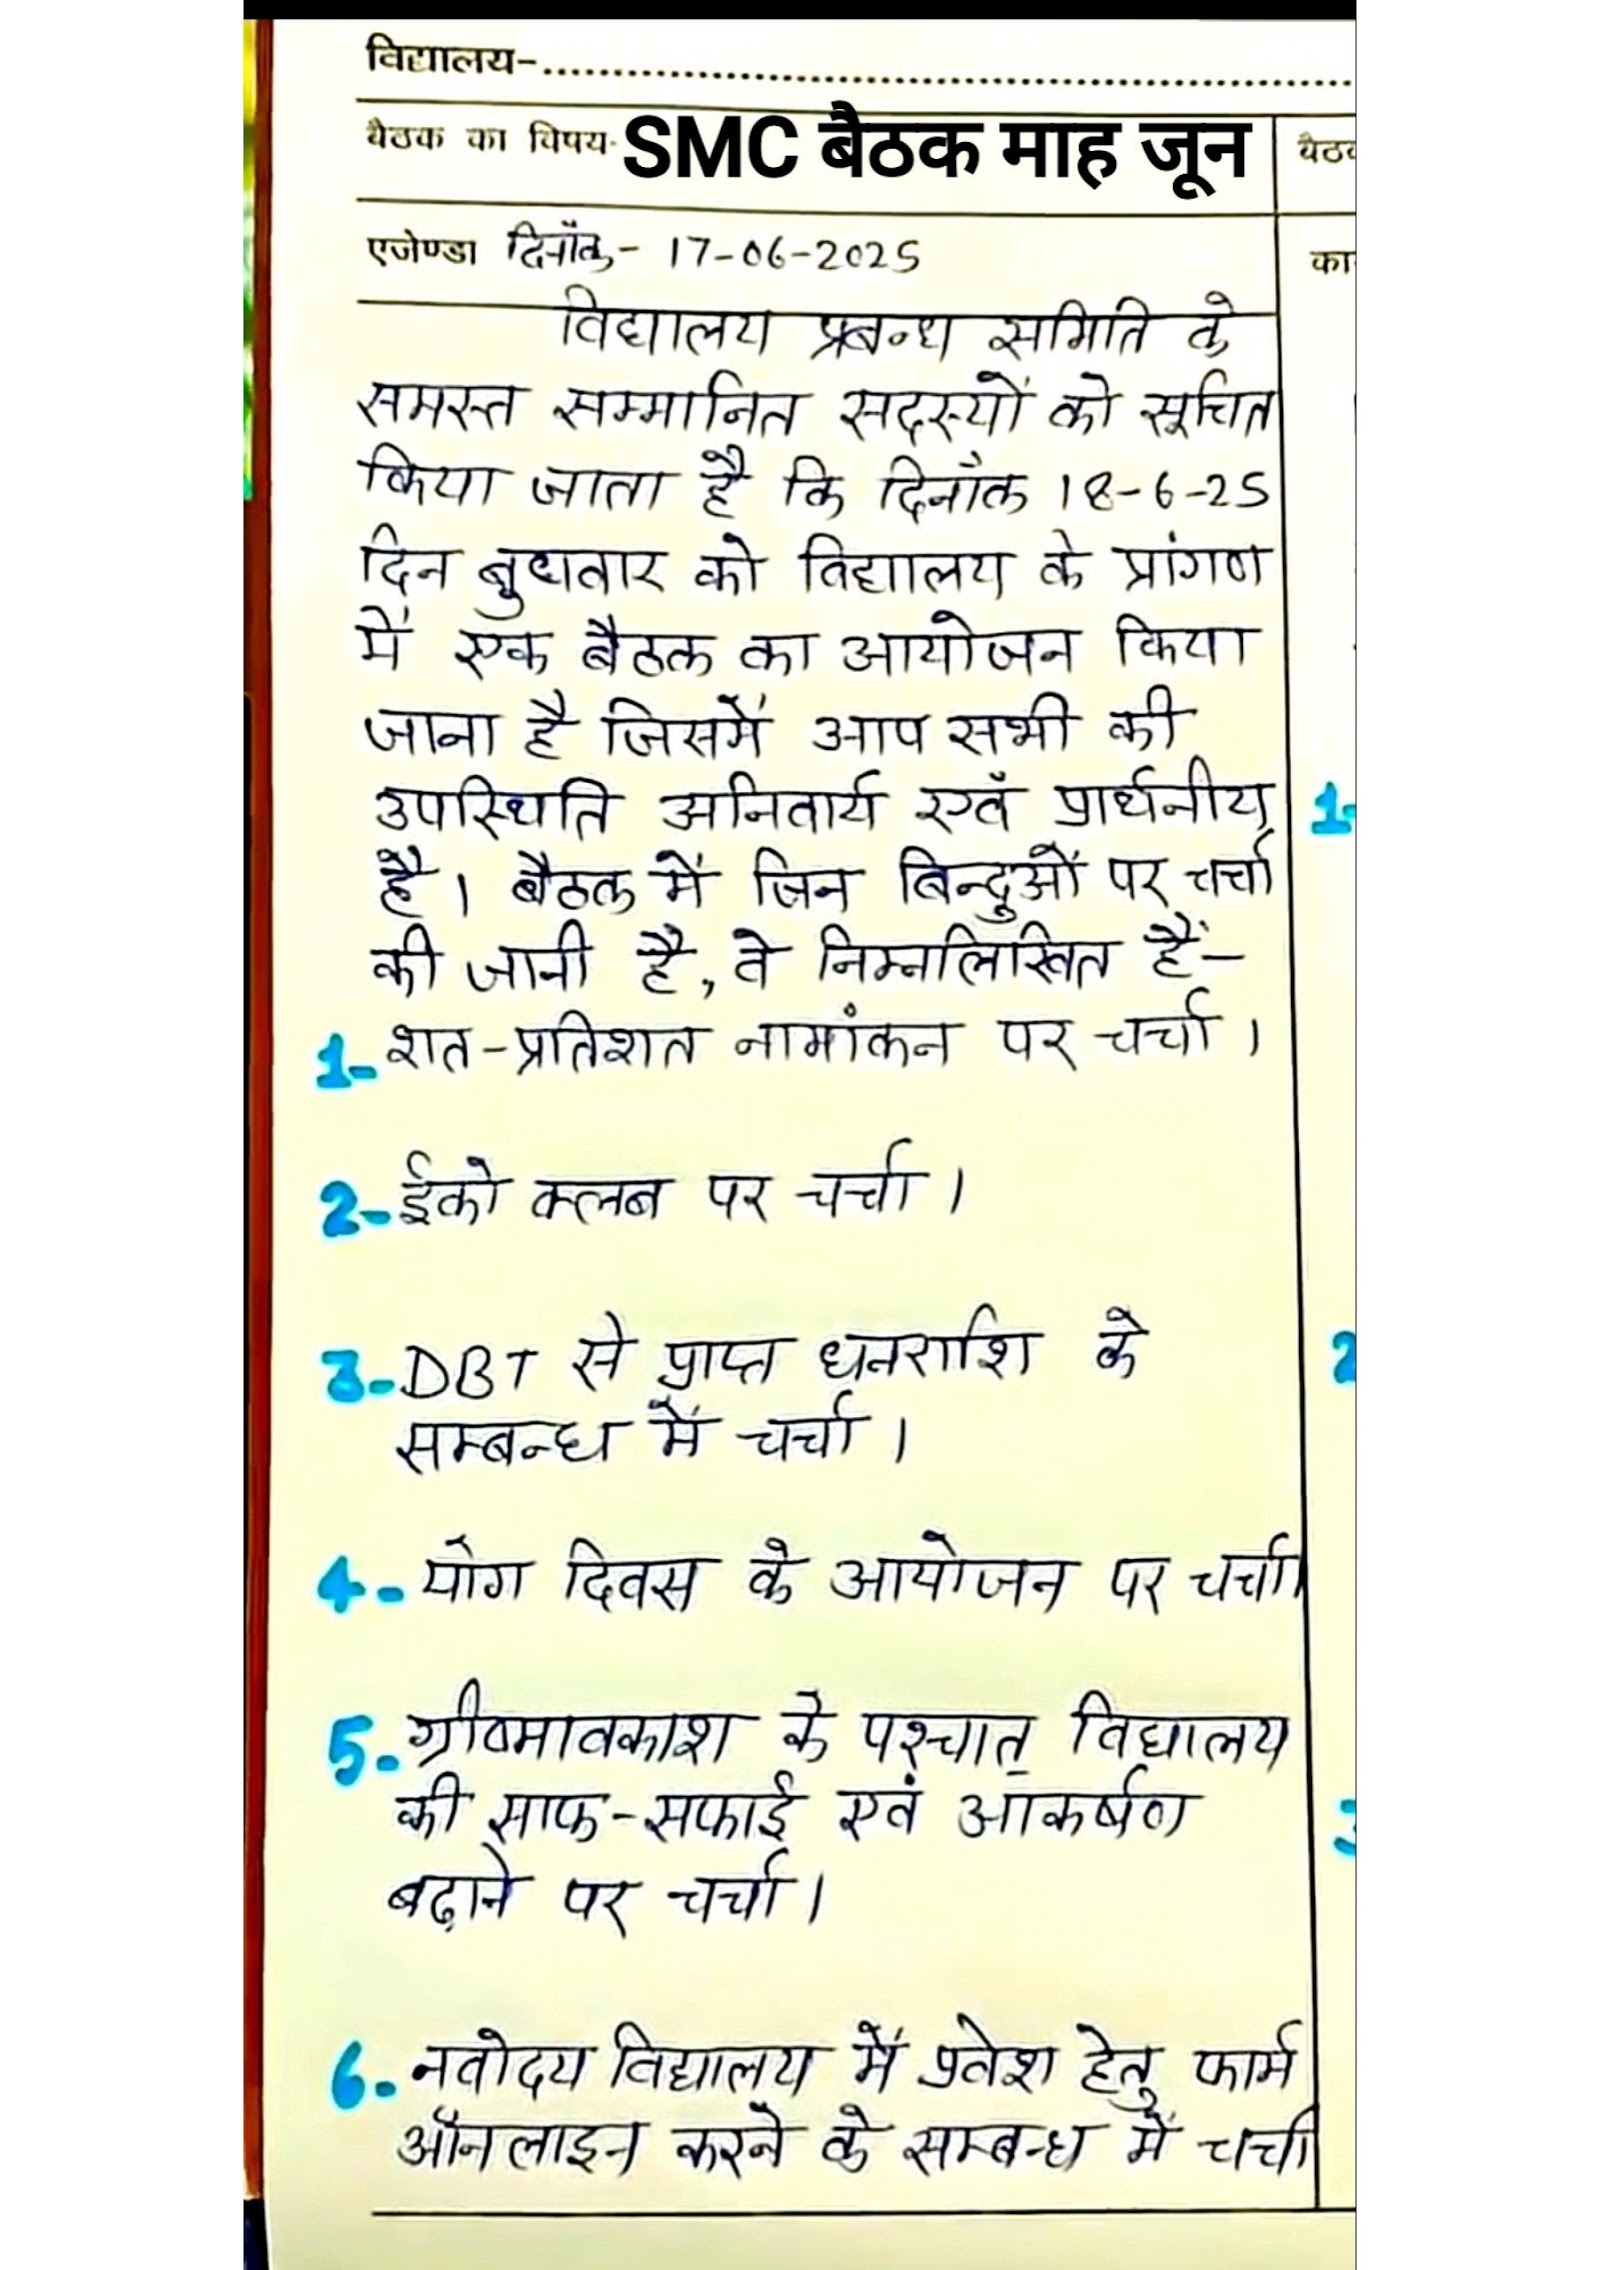 विद्यालय-................................................................
बैठक का विषय- SMC बैठक माह जून
बैठक
एजेण्डा दिनाँक- 17-06-2025
का
विद्यालय प्रबन्ध समिति के
समस्त सम्मानित सदस्यों को सूचित
किया जाता है कि दिनाँक 18-6-25
दिन बुधवार को विद्यालय के प्रांगण
में एक बैठक का आयोजन किया
जाना है जिसमें आप सभी की
उपस्थिति अनिवार्य एवं प्रार्थनीय
है। बैठक में जिन बिन्दुओं पर चर्चा
की जानी है, वे निम्नलिखित हैं-
1- शत-प्रतिशत नामांकन पर चर्चा।
2- ईको क्लब पर चर्चा।
3- DBT से प्राप्त धनराशि के
सम्बन्ध में चर्चा।
4- योग दिवस के आयोजन पर चर्चा।
5- ग्रीष्मावकाश के पश्चात् विद्यालय
की साफ-सफाई एवं आकर्षण
बढ़ाने पर चर्चा।
6- नवोदय विद्यालय में प्रवेश हेतु फार्म
ऑनलाइन करने के सम्बन्ध में चर्चा
1-
2
3